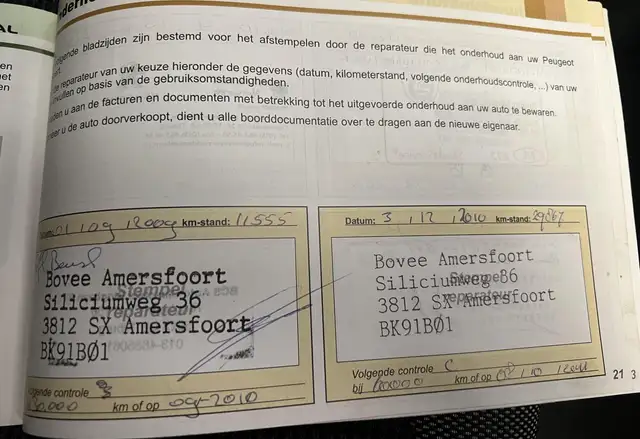 AL
olgende bladzijden zijn bestemd voor het afstempelen door de reparateur die het onderhoud aan uw Peugeot
reparateur van uw keuze hieronder de gegevens (datum, kilometerstand, volgende onderhoudscontrole, ...) van uw
vullen op basis van de gebruiksomstandigheden.
den u aan de facturen en documenten met betrekking tot het uitgevoerde onderhoud aan uw auto te bewaren.
eer u de auto doorverkoopt, dient u alle boorddocumentatie over te dragen aan de nieuwe eigenaar.
01 109 12009 km-stand: 11555
Bovee Amersfoort
Siliciumweg 36
3812 SX Amersfoort
BK91BØ1
Stempel
reparateur
gende controle
km of op 09-2010
Datum: 3 , 12 , 2010 km-stand: 29867
Bovee Amersfoort
Siliciumweg 36
3812 SX Amersfoort
BK91BØ1
Stempel
reparateur
Volgende controle C
bij 60000 km of op
21 3